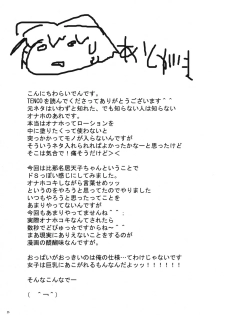 こんにちわらいでんです。
TENCOを読んでくださってありがとうございます＾＾
元ネタはいわずと知れた、でも知らない人は知らない
オナホのあれです。
本当はオナホってローション を
中に塗りたくって使わないと
突っかかってモノが入らないんですが
そういうネタ入れられればよかったかなーと思ったけど
そこは気合で！痛そうだけど＞＜
今回は比那名居天子ちゃんということで
ドSっぽい感じにしてみました。
オナホコキしながら言葉せめッッ
というのをやろうと思ってたのでやりました
いつもやろうと思ったってことを
あまりやってないんですが
今回もあまりやってませんね＾＾；
実際オナホコキなんてされたら
数秒でどぴゅっ☆ですからねー＾＾
まあ現実にありえないことをするのが
漫画の醍醐味なんですが。
おっぱいがおっきいのは俺の仕様…てわけじゃないです
女子は巨乳にあこがれるもんなんだよッッ！！！！！！
そんなこんなでー
（　＾ー＾）